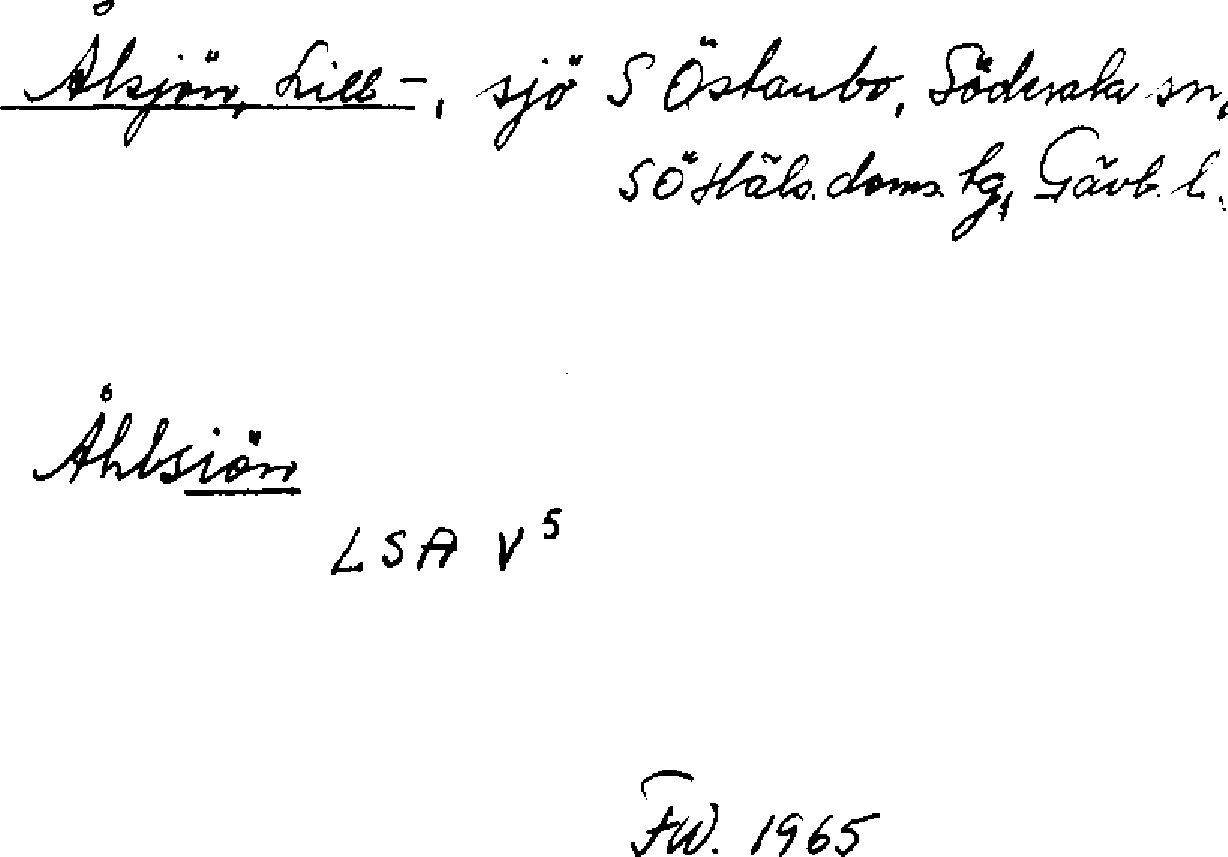 Ålsjön, Lill-, sjö S Östanbo, Söderala sn,
SÖ Häls. doms. tg, Gävb. l.
Åhlsiön
LSA V5
FW. 1965